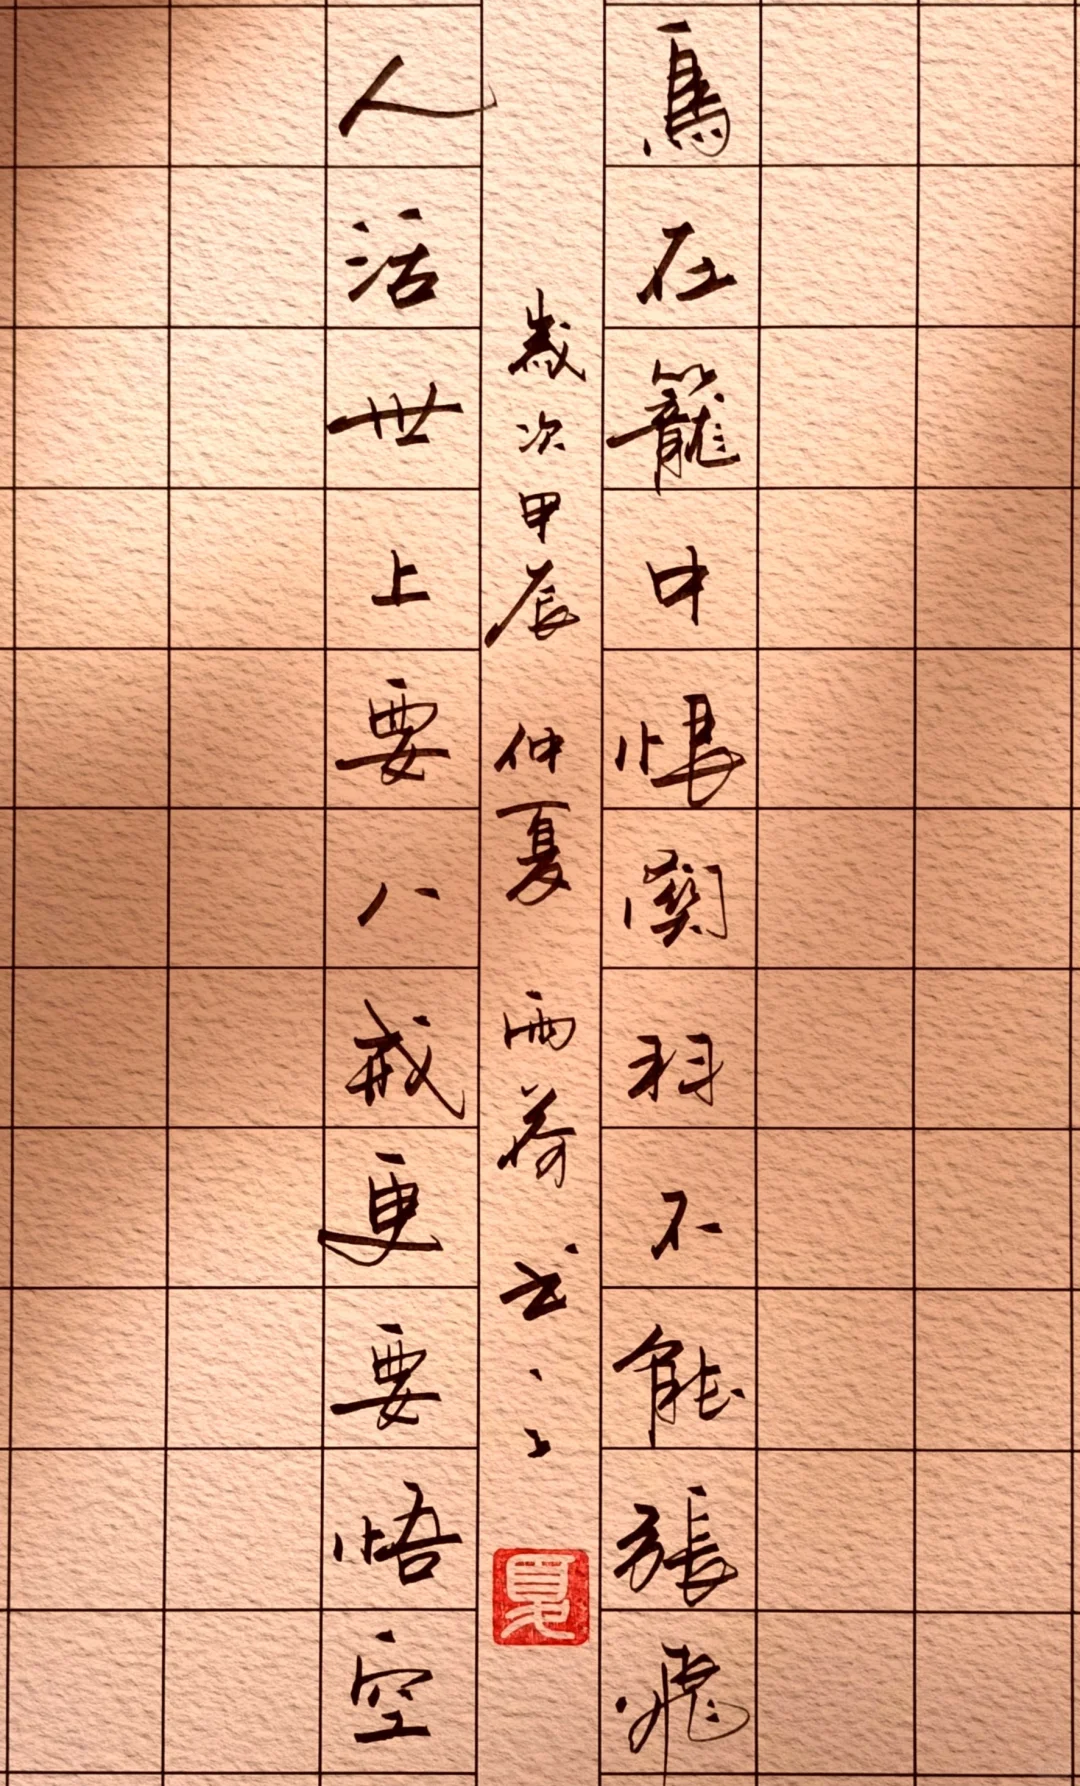 鳥在籠中恨關羽不能張飛
人活世上要八戒更要悟空
歲次甲辰 仲夏 雨荷书之
夏